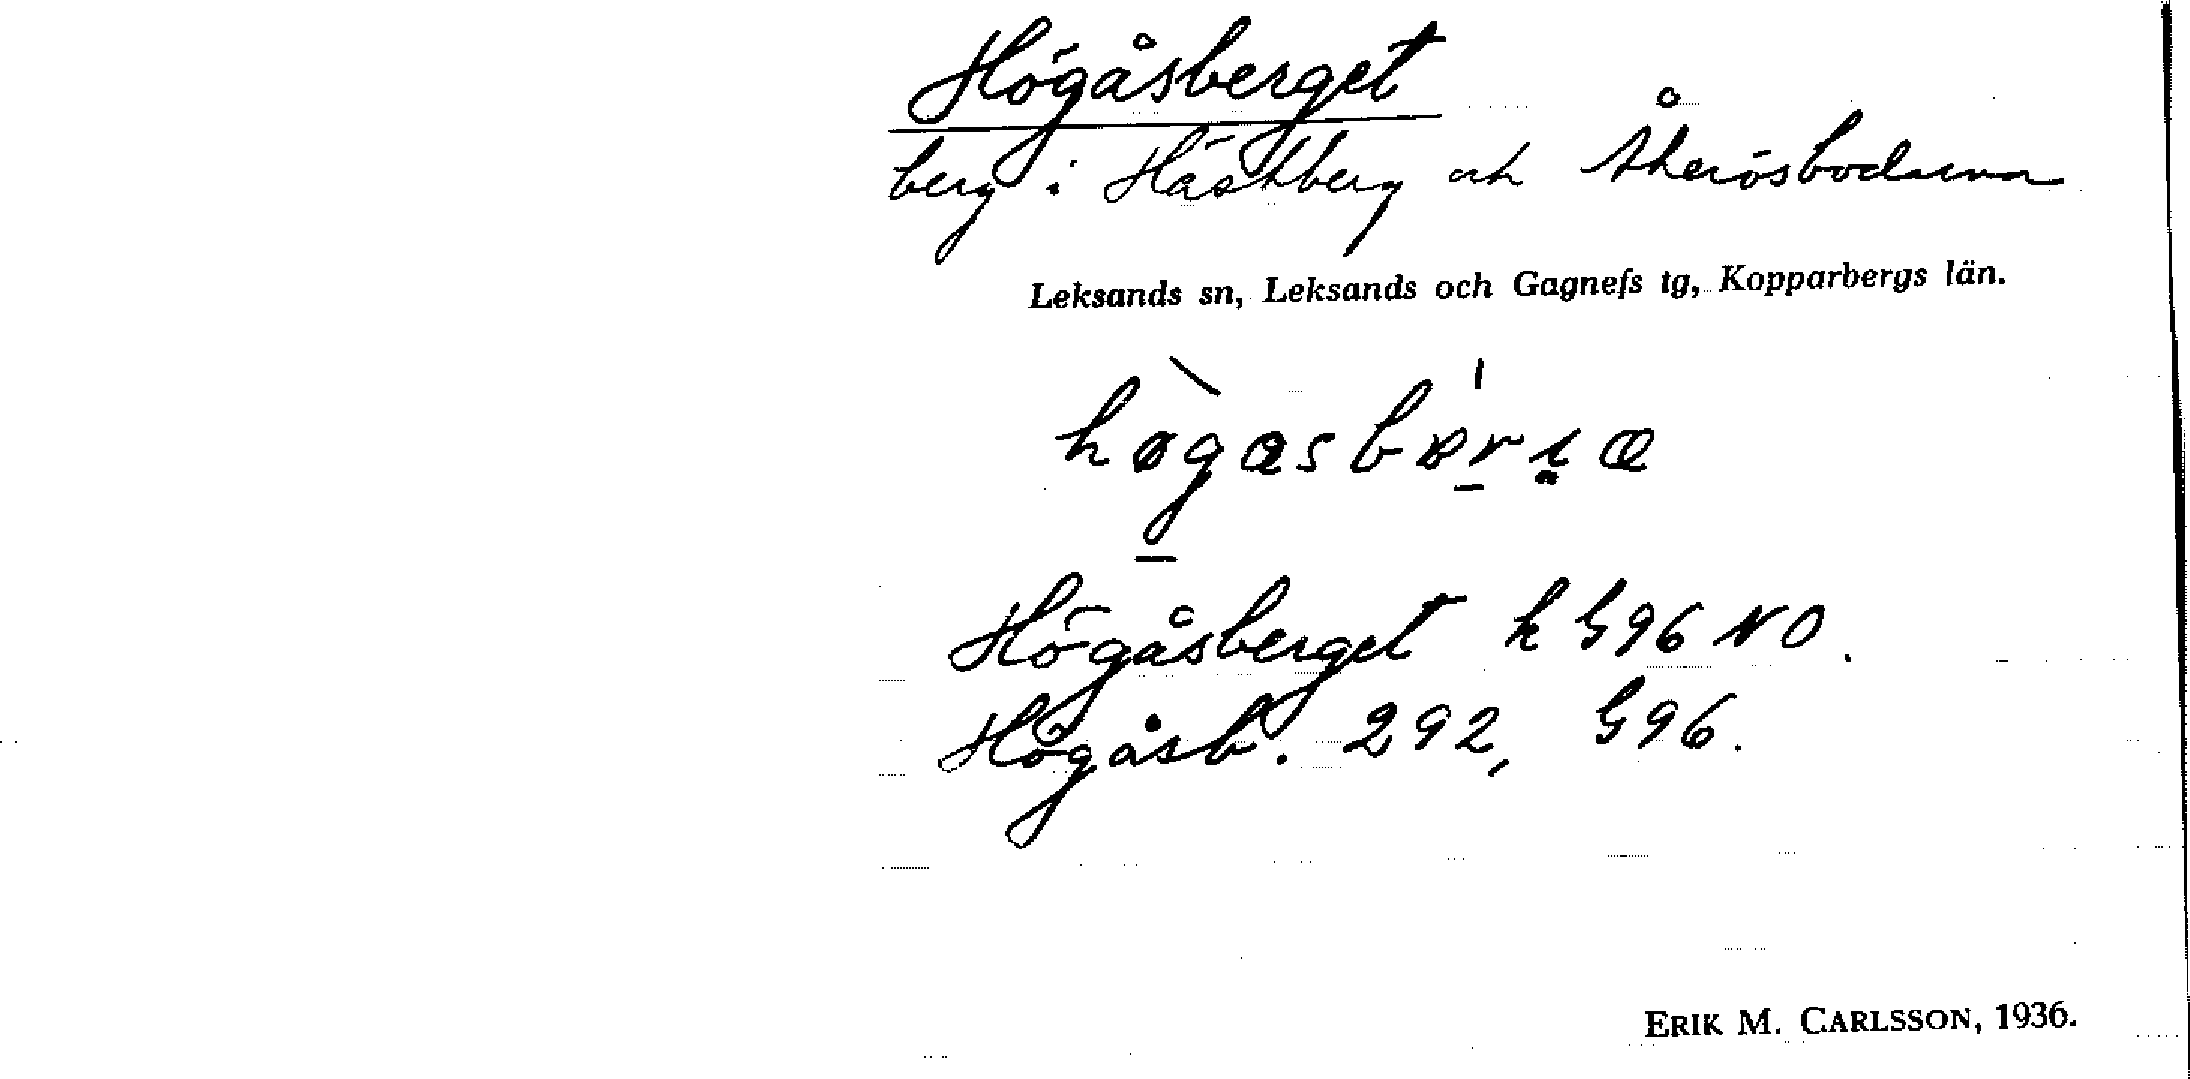 Högåsberget
berg i Hästberg och Åkerösbodarna
Leksands sn, Leksands och Gagnefs tg, Kopparbergs län.
Högåsberget k G96 NO.
Högåsb. 292, G96.
ERIK M. CARLSSON, 1936.